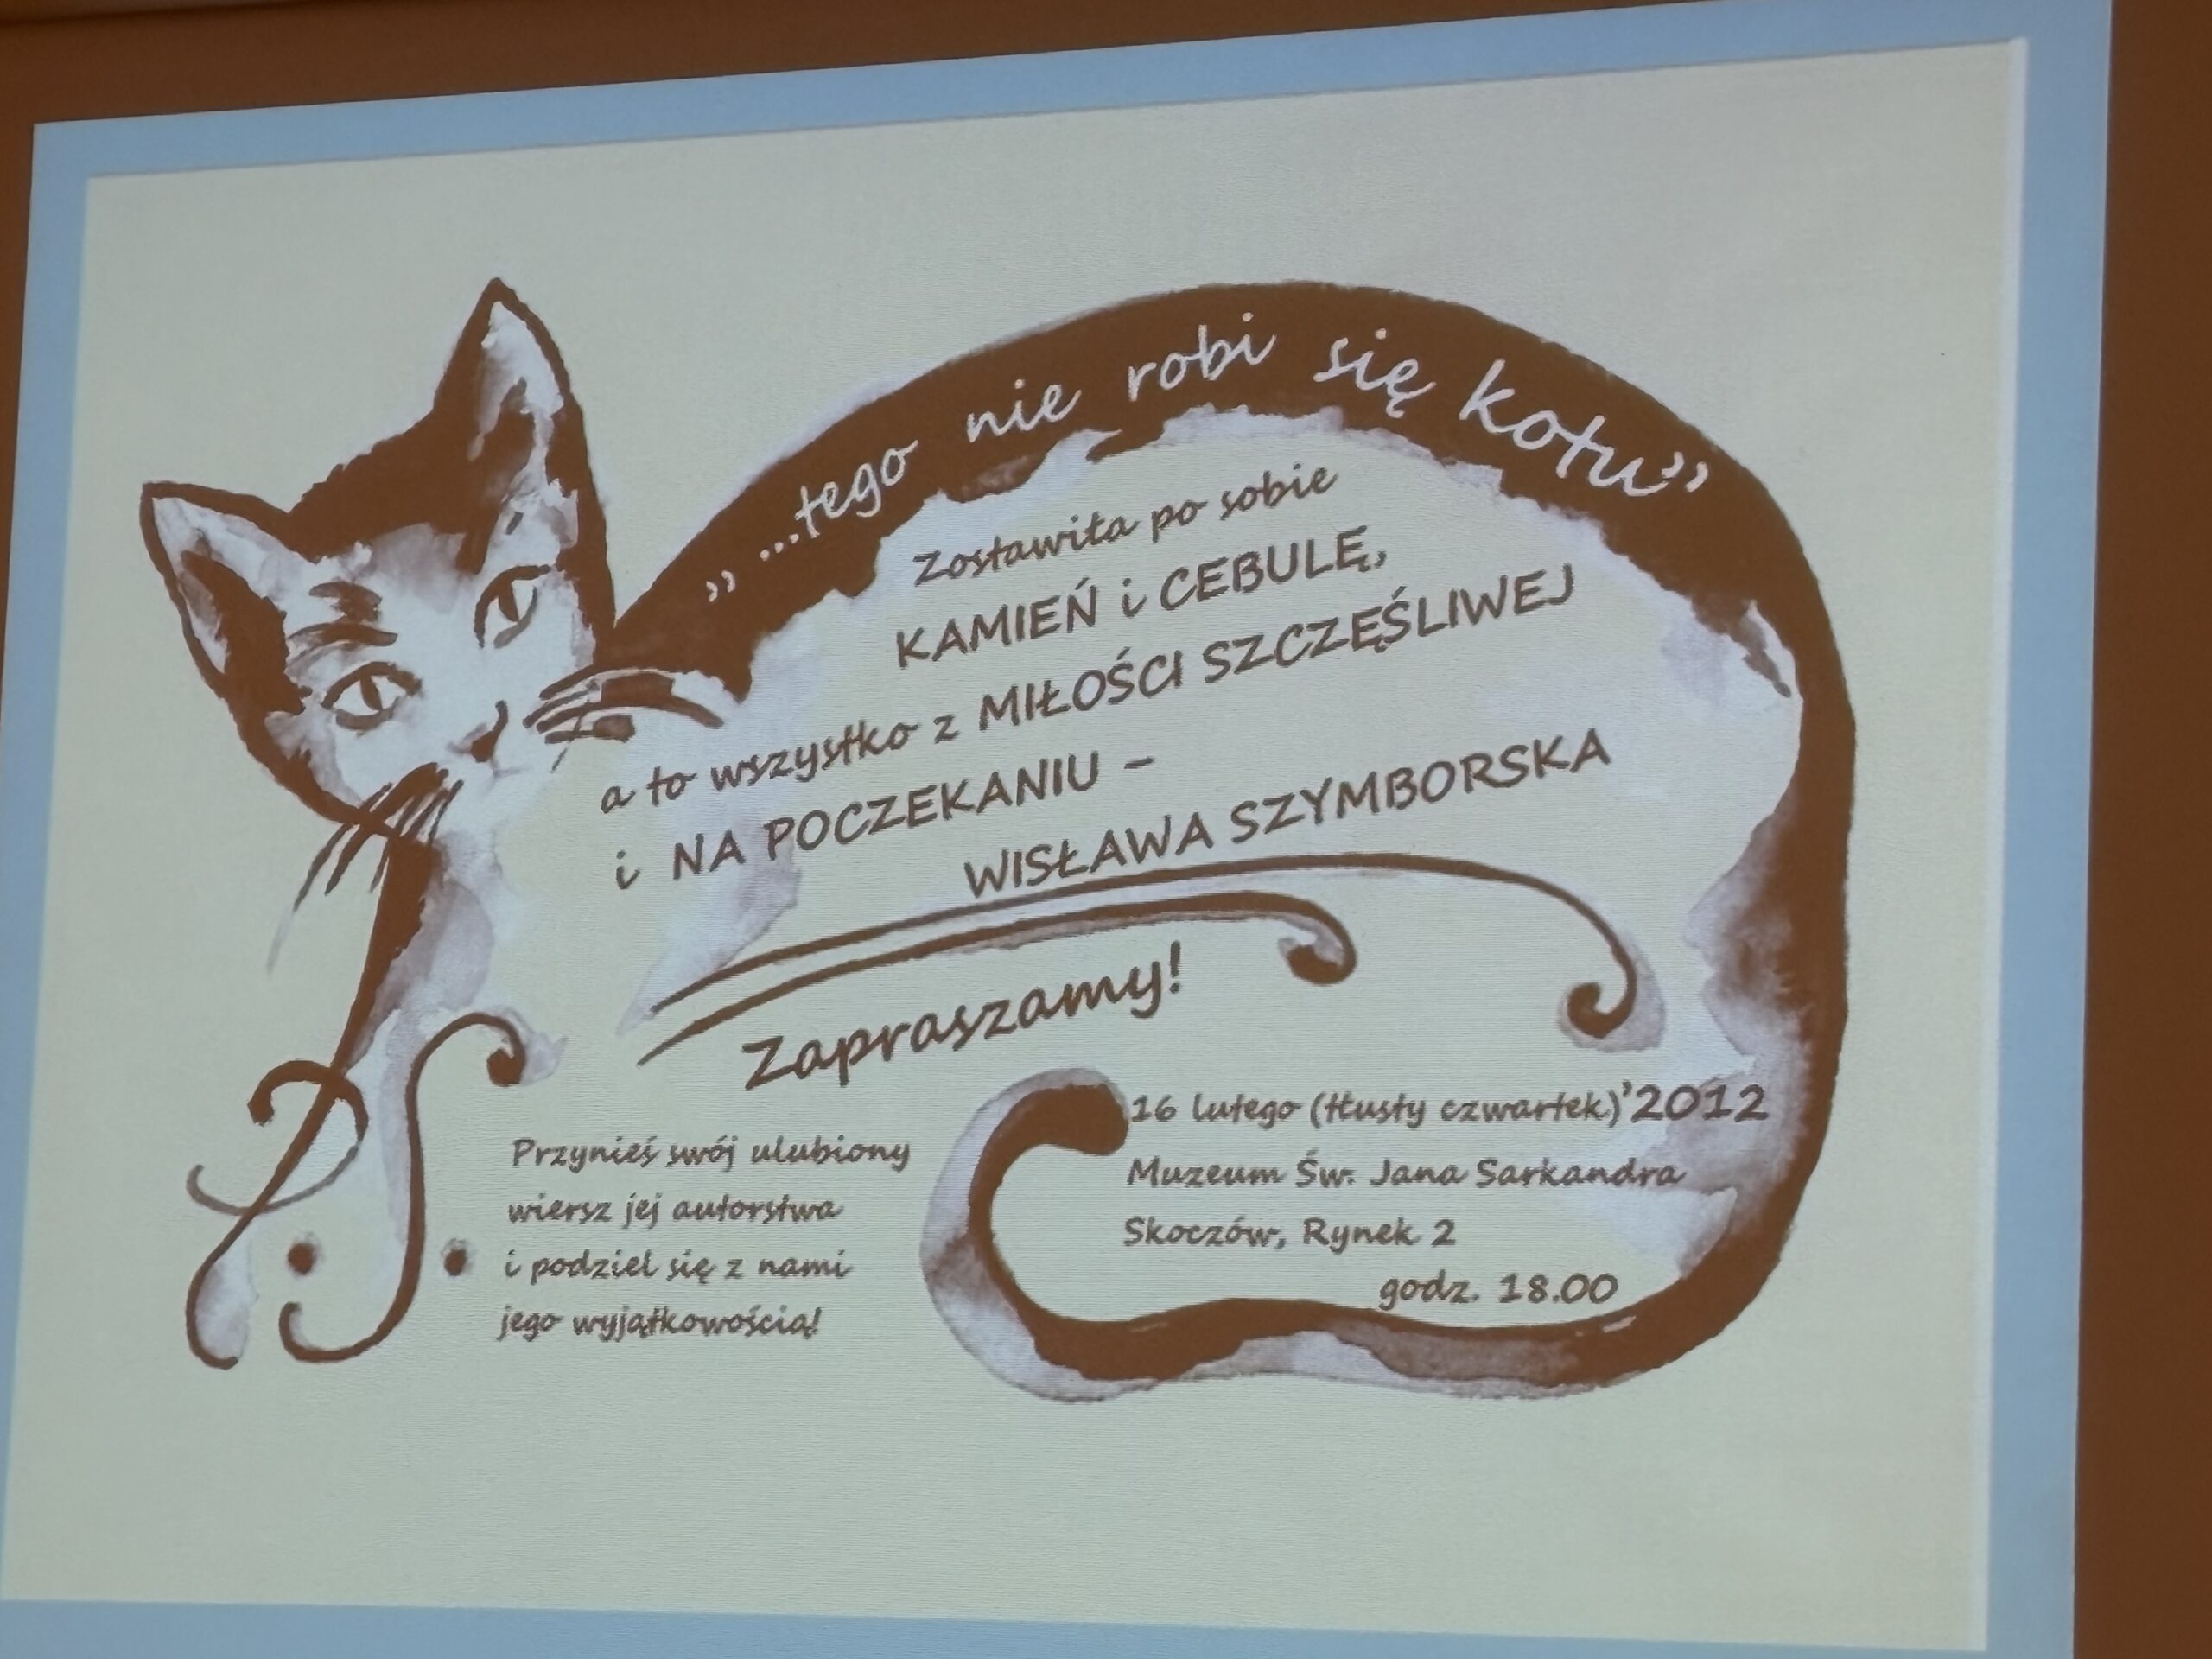 „...tego nie robi się kotu”
Zostawiła po sobie
KAMIEŃ i CEBULĘ,
a to wszystko z MIŁOŚCI SZCZĘŚLIWEJ
i NA POCZEKANIU –
WISŁAWA SZYMBORSKA
Zapraszamy!
16 lutego (tłusty czwartek)'2012
Muzeum Św. Jana Sarkandra
Skoczów, Rynek 2
godz. 18.00
P.S.
Przynieś swój ulubiony
wiersz jej autorstwa
i podziel się z nami
jego wyjątkowością!